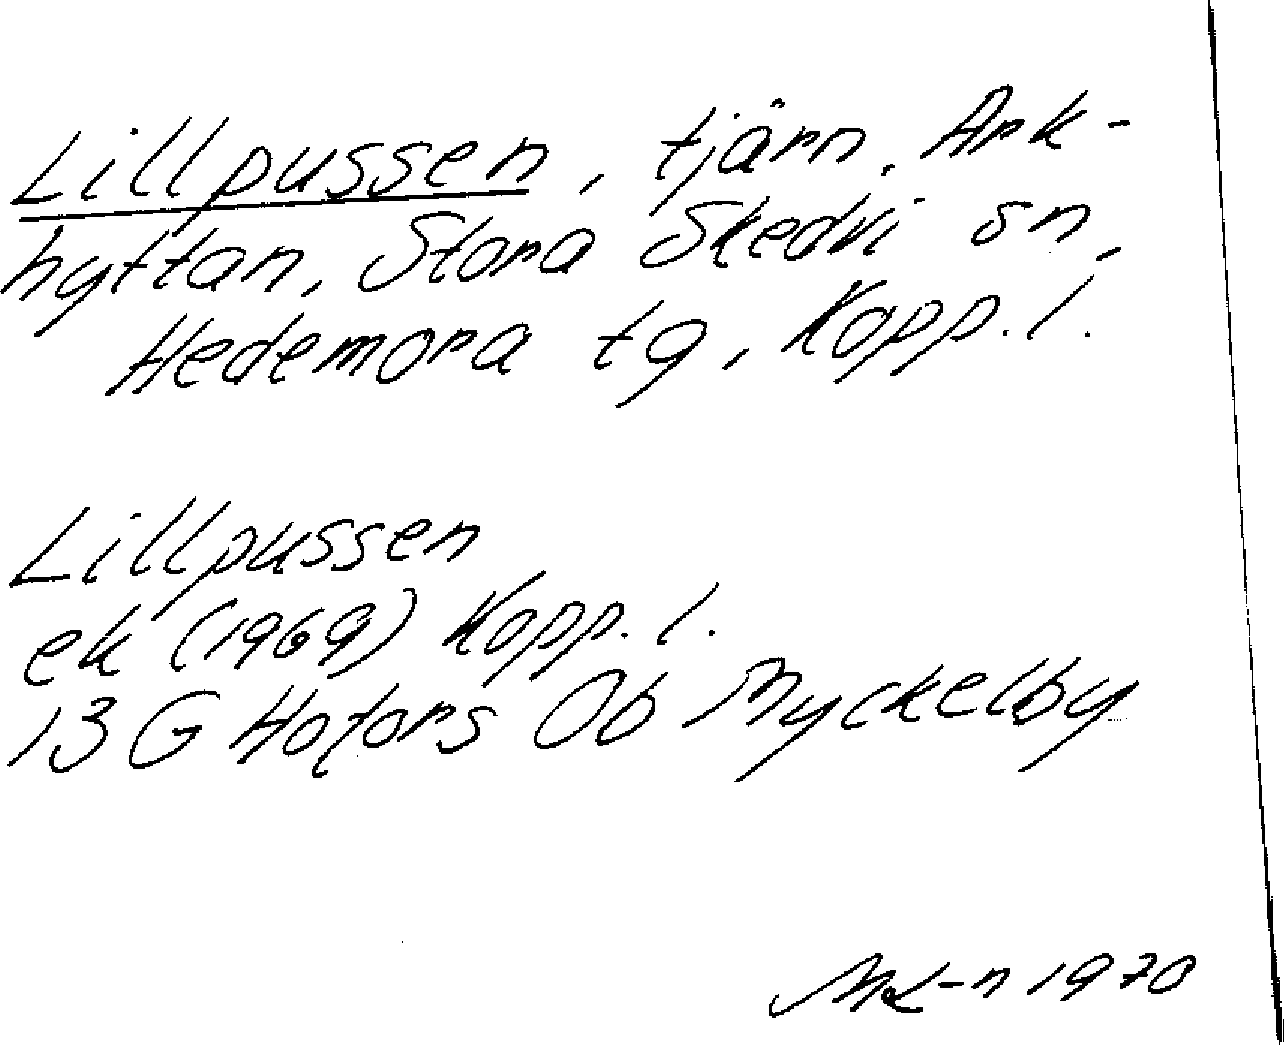 Lillpussen, tjärn, Ark-
hyttan, Stora Skedvi sn,
Hedemora tg, Kopp. l.
Lillpussen
ek (1969) Kopp. l.
13 G Hofors 0b Myckelby
1970